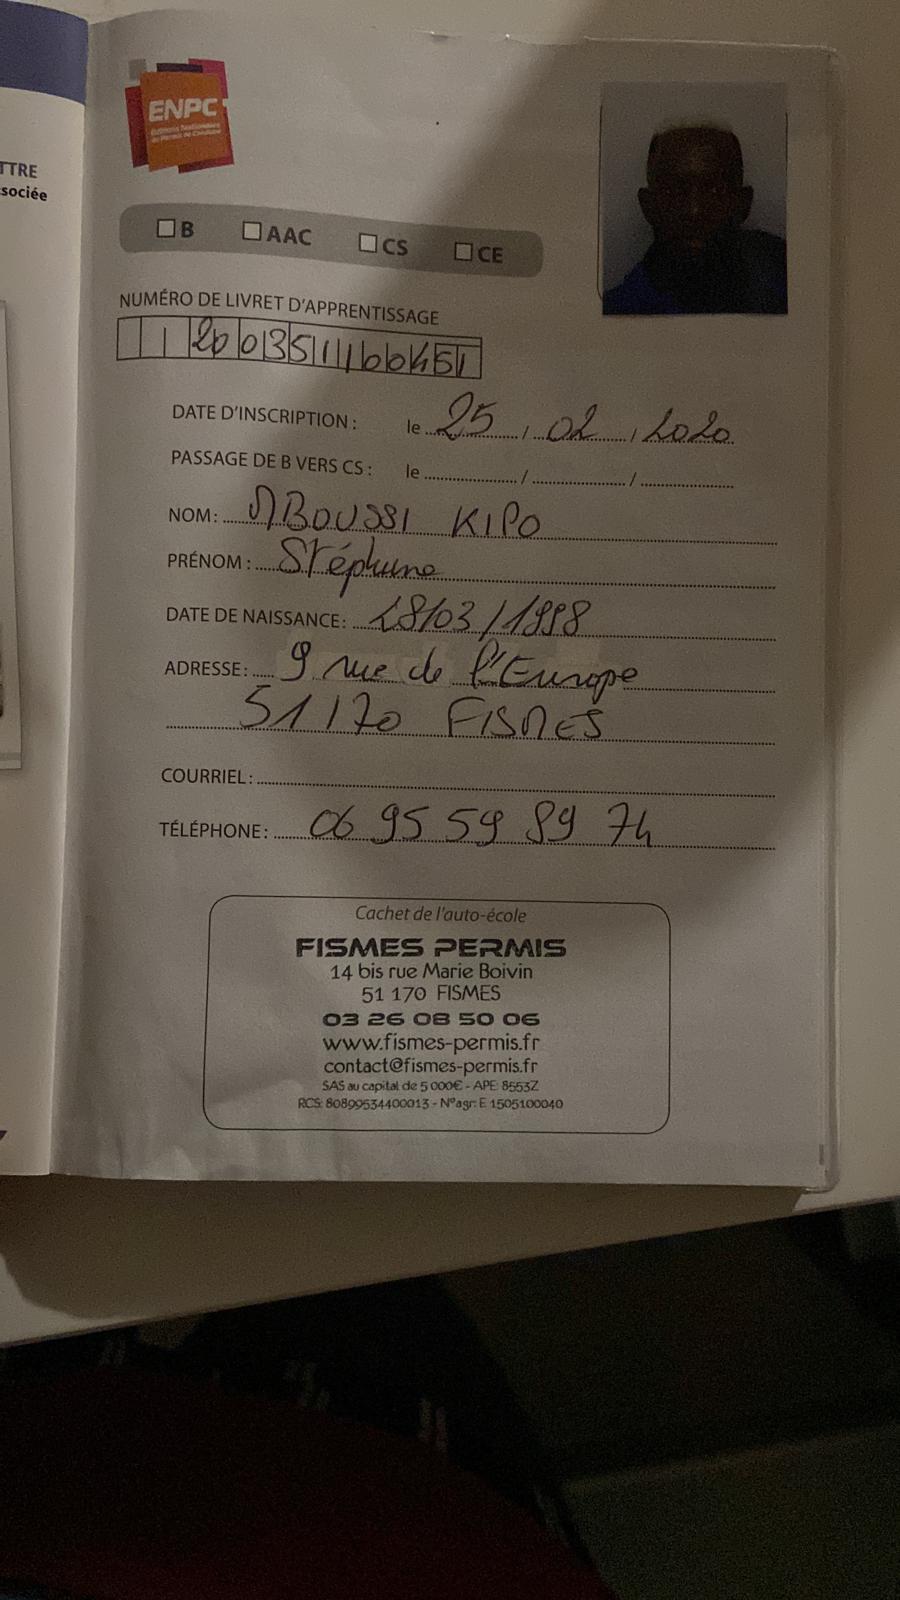 TTRE
ssociée
ENPC
Éditions Nationales
du Permis de Conduire
B AAC CS CE
NUMÉRO DE LIVRET D'APPRENTISSAGE
DATE D'INSCRIPTION : le 25 / 02 / 2020
PASSAGE DE B VERS CS : le / /
NOM : MBOUSSI KIPO
PRÉNOM : Stéphane
DATE DE NAISSANCE : 28/03/1998
ADRESSE : 9 rue de l'Europe
51170 FISMES
COURRIEL :
TÉLÉPHONE : 06 95 59 89 74
Cachet de l'auto-école
FISMES PERMIS
14 bis rue Marie Boivin
51 170 FISMES
03 26 08 50 06
www.fismes-permis.fr
contact@fismes-permis.fr
SAS au capital de 5 000€ - APE: 8553Z
RCS: 80899534400013 - N°agr: E 1505100040